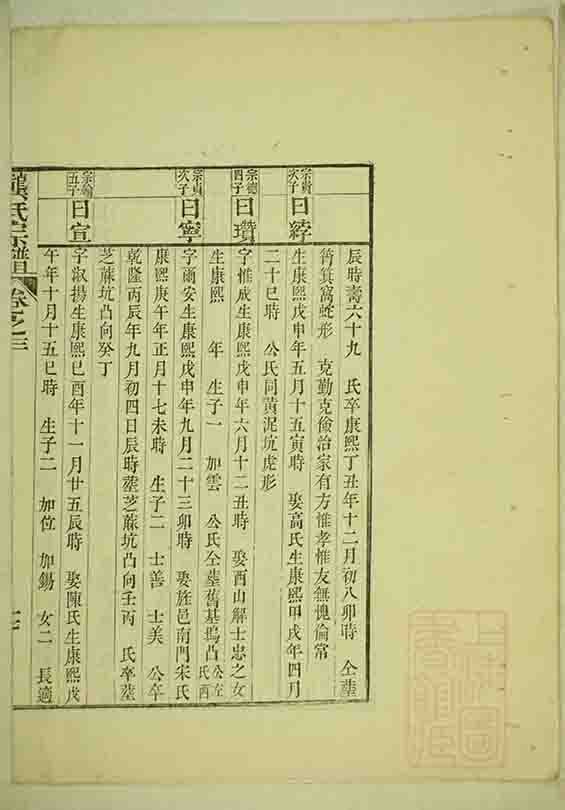 辰時壽六十九 氏卒康熙丁丑年十二月初八卯時 仝塟
筲箕窩蛇形 克勤克儉治家有方惟孝惟友無愧倫常
宗貴次子 曰
生康熙戊申年五月十五寅時 娶高氏生康熙甲戌年四月
二十巳時 公氏同黄泥坑虎形
宗德四子 曰瓚
字惟成生康熙戊申年六月十二丑時 娶西山解士忠之女
生康熙 年 生子一 加雲 公氏仝塟舊基塢凸公左氏丙
宗貞次子 曰寧
字爾安生康熙戊申年九月二十三卯時 娶旌邑南門宋氏
康熙庚午年正月十七未時 生子二 士善 士美 公卒
乾隆丙辰年九月初四日辰時塟芝蔴坑凸向壬丙 氏卒塟
芝蔴坑凸向癸丁
宗綸五子 曰宣
字淑揚生康熙己酉年十一月廿五辰時 娶陳氏生康熙戊
午年十月十五巳時 生子二 加位 加錫 女二 長適
氏宗譜 卷之三